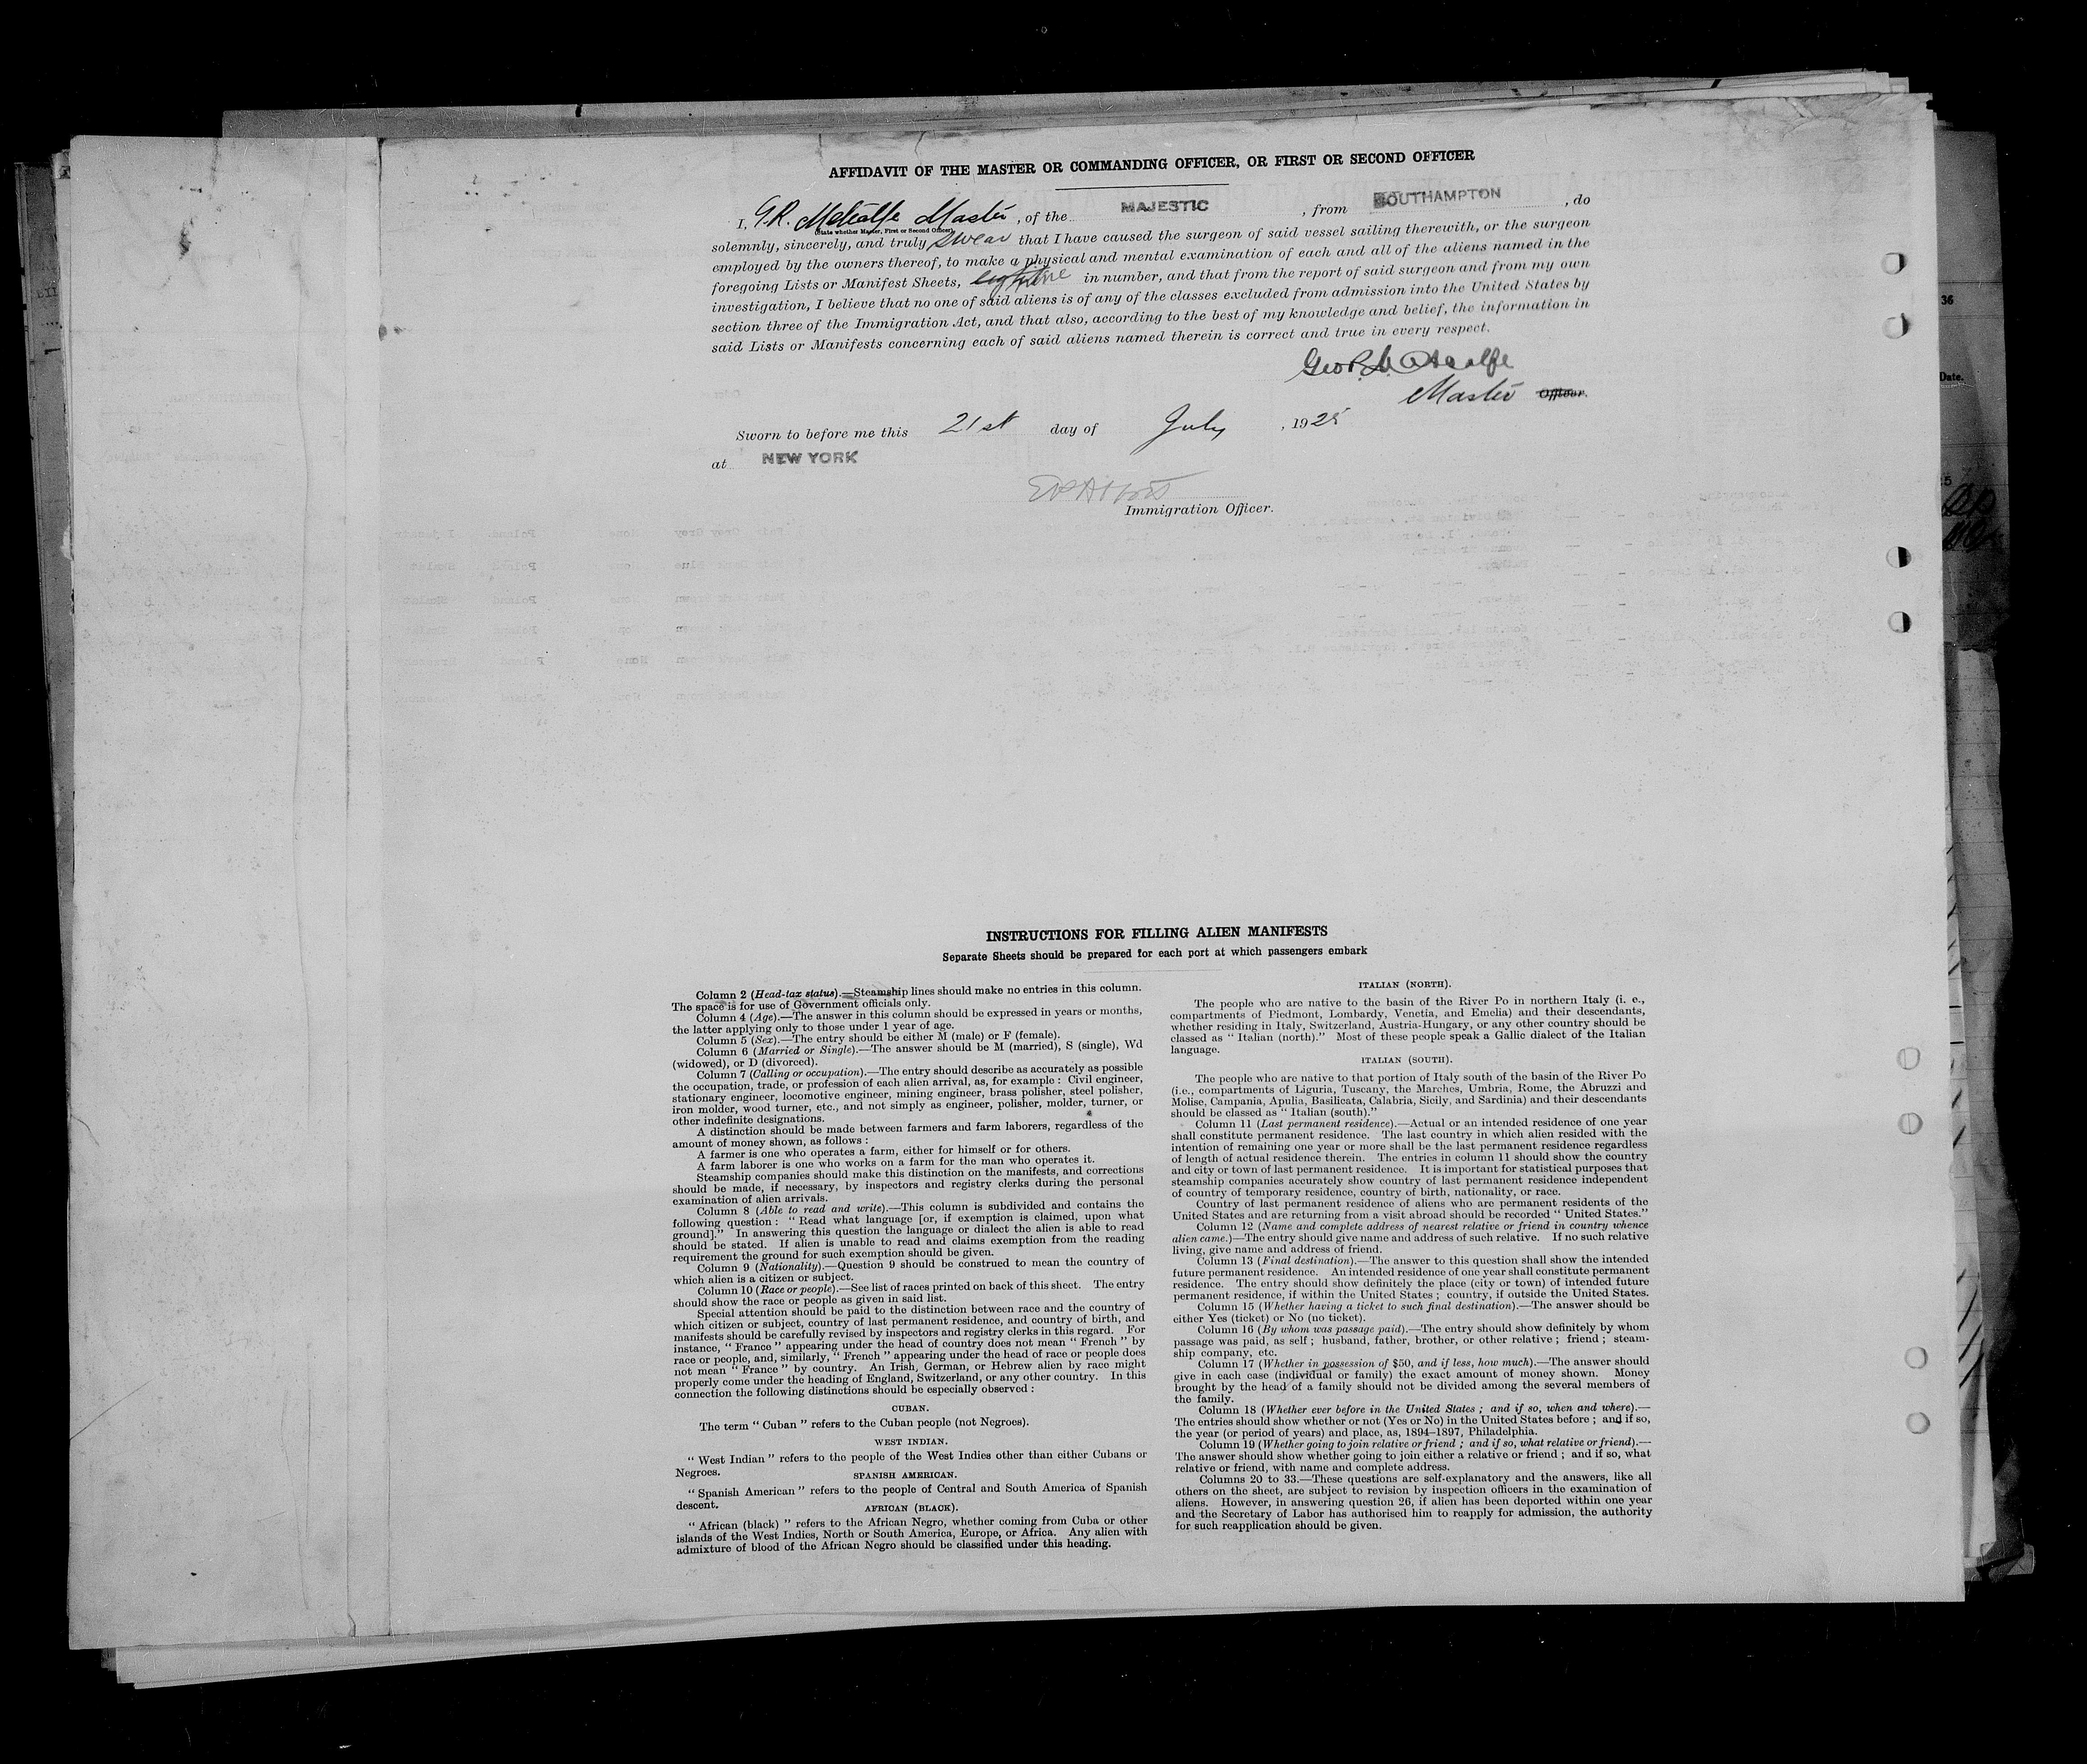 AFFIDAVIT OF THE MASTER OR COMMANDING OFFICER, OR FIRST OR SECOND OFFICER
I, G.R. Metcalfe Master, of the MAJESTIC, from SOUTHAMPTON, do
(State whether Master, First or Second Officer)
solemnly, sincerely, and truly swear that I have caused the surgeon of said vessel sailing therewith, or the surgeon
employed by the owners thereof, to make a physical and mental examination of each and all of the aliens named in the
foregoing Lists or Manifest Sheets, in number, and that from the report of said surgeon and from my own
investigation, I believe that no one of said aliens is of any of the classes excluded from admission into the United States by
section three of the Immigration Act, and that also, according to the best of my knowledge and belief, the information in
said Lists or Manifests concerning each of said aliens named therein is correct and true in every respect.
Geo R. Metcalfe
Master Officer.
Sworn to before me this 21st day of July, 1925
at NEW YORK
Immigration Officer.
36
Date.
INSTRUCTIONS FOR FILLING ALIEN MANIFESTS
Separate Sheets should be prepared for each port at which passengers embark
Column 2 (Head-tax status).—Steamship lines should make no entries in this column.
The space is for use of Government officials only.
Column 4 (Age).—The answer in this column should be expressed in years or months,
the latter applying only to those under 1 year of age.
Column 5 (Sex).—The entry should be either M (male) or F (female).
Column 6 (Married or Single).—The answer should be M (married), S (single), Wd
(widowed), or D (divorced).
Column 7 (Calling or occupation).—The entry should describe as accurately as possible
the occupation, trade, or profession of each alien arrival, as, for example : Civil engineer,
stationary engineer, locomotive engineer, mining engineer, brass polisher, steel polisher,
iron molder, wood turner, etc., and not simply as engineer, polisher, molder, turner, or
other indefinite designations.
A distinction should be made between farmers and farm laborers, regardless of the
amount of money shown, as follows :
A farmer is one who operates a farm, either for himself or for others.
A farm laborer is one who works on a farm for the man who operates it.
Steamship companies should make this distinction on the manifests, and corrections
should be made, if necessary, by inspectors and registry clerks during the personal
examination of alien arrivals.
Column 8 (Able to read and write).—This column is subdivided and contains the
following question : “ Read what language [or, if exemption is claimed, upon what
ground].” In answering this question the language or dialect the alien is able to read
should be stated. If alien is unable to read and claims exemption from the reading
requirement the ground for such exemption should be given.
Column 9 (Nationality).—Question 9 should be construed to mean the country of
which alien is a citizen or subject.
Column 10 (Race or people).—See list of races printed on back of this sheet. The entry
should show the race or people as given in said list.
Special attention should be paid to the distinction between race and the country of
which citizen or subject, country of last permanent residence, and country of birth, and
manifests should be carefully revised by inspectors and registry clerks in this regard. For
instance, “ France ” appearing under the head of country does not mean “ French ” by
race or people, and, similarly, “ French ” appearing under the head of race or people does
not mean “ France ” by country. An Irish, German, or Hebrew alien by race might
properly come under the heading of England, Switzerland, or any other country. In this
connection the following distinctions should be especially observed :
CUBAN.
The term “ Cuban ” refers to the Cuban people (not Negroes).
WEST INDIAN.
“ West Indian ” refers to the people of the West Indies other than either Cubans or
Negroes.
SPANISH AMERICAN.
“ Spanish American ” refers to the people of Central and South America of Spanish
descent.
AFRICAN (BLACK).
“ African (black) ” refers to the African Negro, whether coming from Cuba or other
islands of the West Indies, North or South America, Europe, or Africa. Any alien with
admixture of blood of the African Negro should be classified under this heading.
ITALIAN (NORTH).
The people who are native to the basin of the River Po in northern Italy (i. e.,
compartments of Piedmont, Lombardy, Venetia, and Emelia) and their descendants,
whether residing in Italy, Switzerland, Austria-Hungary, or any other country should be
classed as “ Italian (north).” Most of these people speak a Gallic dialect of the Italian
language.
ITALIAN (SOUTH).
The people who are native to that portion of Italy south of the basin of the River Po
(i.e., compartments of Liguria, Tuscany, the Marches, Umbria, Rome, the Abruzzi and
Molise, Campania, Apulia, Basilicata, Calabria, Sicily, and Sardinia) and their descendants
should be classed as “ Italian (south).”
Column 11 (Last permanent residence).—Actual or an intended residence of one year
shall constitute permanent residence. The last country in which alien resided with the
intention of remaining one year or more shall be the last permanent residence regardless
of length of actual residence therein. The entries in column 11 should show the country
and city or town of last permanent residence. It is important for statistical purposes that
steamship companies accurately show country of last permanent residence independent
of country of temporary residence, country of birth, nationality, or race.
Country of last permanent residence of aliens who are permanent residents of the
United States and are returning from a visit abroad should be recorded “ United States.”
Column 12 (Name and complete address of nearest relative or friend in country whence
alien came.)—The entry should give name and address of such relative. If no such relative
living, give name and address of friend.
Column 13 (Final destination).—The answer to this question shall show the intended
future permanent residence. An intended residence of one year shall constitute permanent
residence. The entry should show definitely the place (city or town) of intended future
permanent residence, if within the United States ; country, if outside the United States.
Column 15 (Whether having a ticket to such final destination).—The answer should be
either Yes (ticket) or No (no ticket).
Column 16 (By whom was passage paid).—The entry should show definitely by whom
passage was paid, as self ; husband, father, brother, or other relative ; friend ; steam-
ship company, etc.
Column 17 (Whether in possession of $50, and if less, how much).—The answer should
give in each case (individual or family) the exact amount of money shown. Money
brought by the head of a family should not be divided among the several members of
the family.
Column 18 (Whether ever before in the United States ; and if so, when and where).—
The entries should show whether or not (Yes or No) in the United States before ; and if so,
the year (or period of years) and place, as, 1894–1897, Philadelphia.
Column 19 (Whether going to join relative or friend ; and if so, what relative or friend).—
The answer should show whether going to join either a relative or friend ; and if so, what
relative or friend, with name and complete address.
Columns 20 to 33.—These questions are self-explanatory and the answers, like all
others on the sheet, are subject to revision by inspection officers in the examination of
aliens. However, in answering question 26, if alien has been deported within one year
and the Secretary of Labor has authorised him to reapply for admission, the authority
for such reapplication should be given.